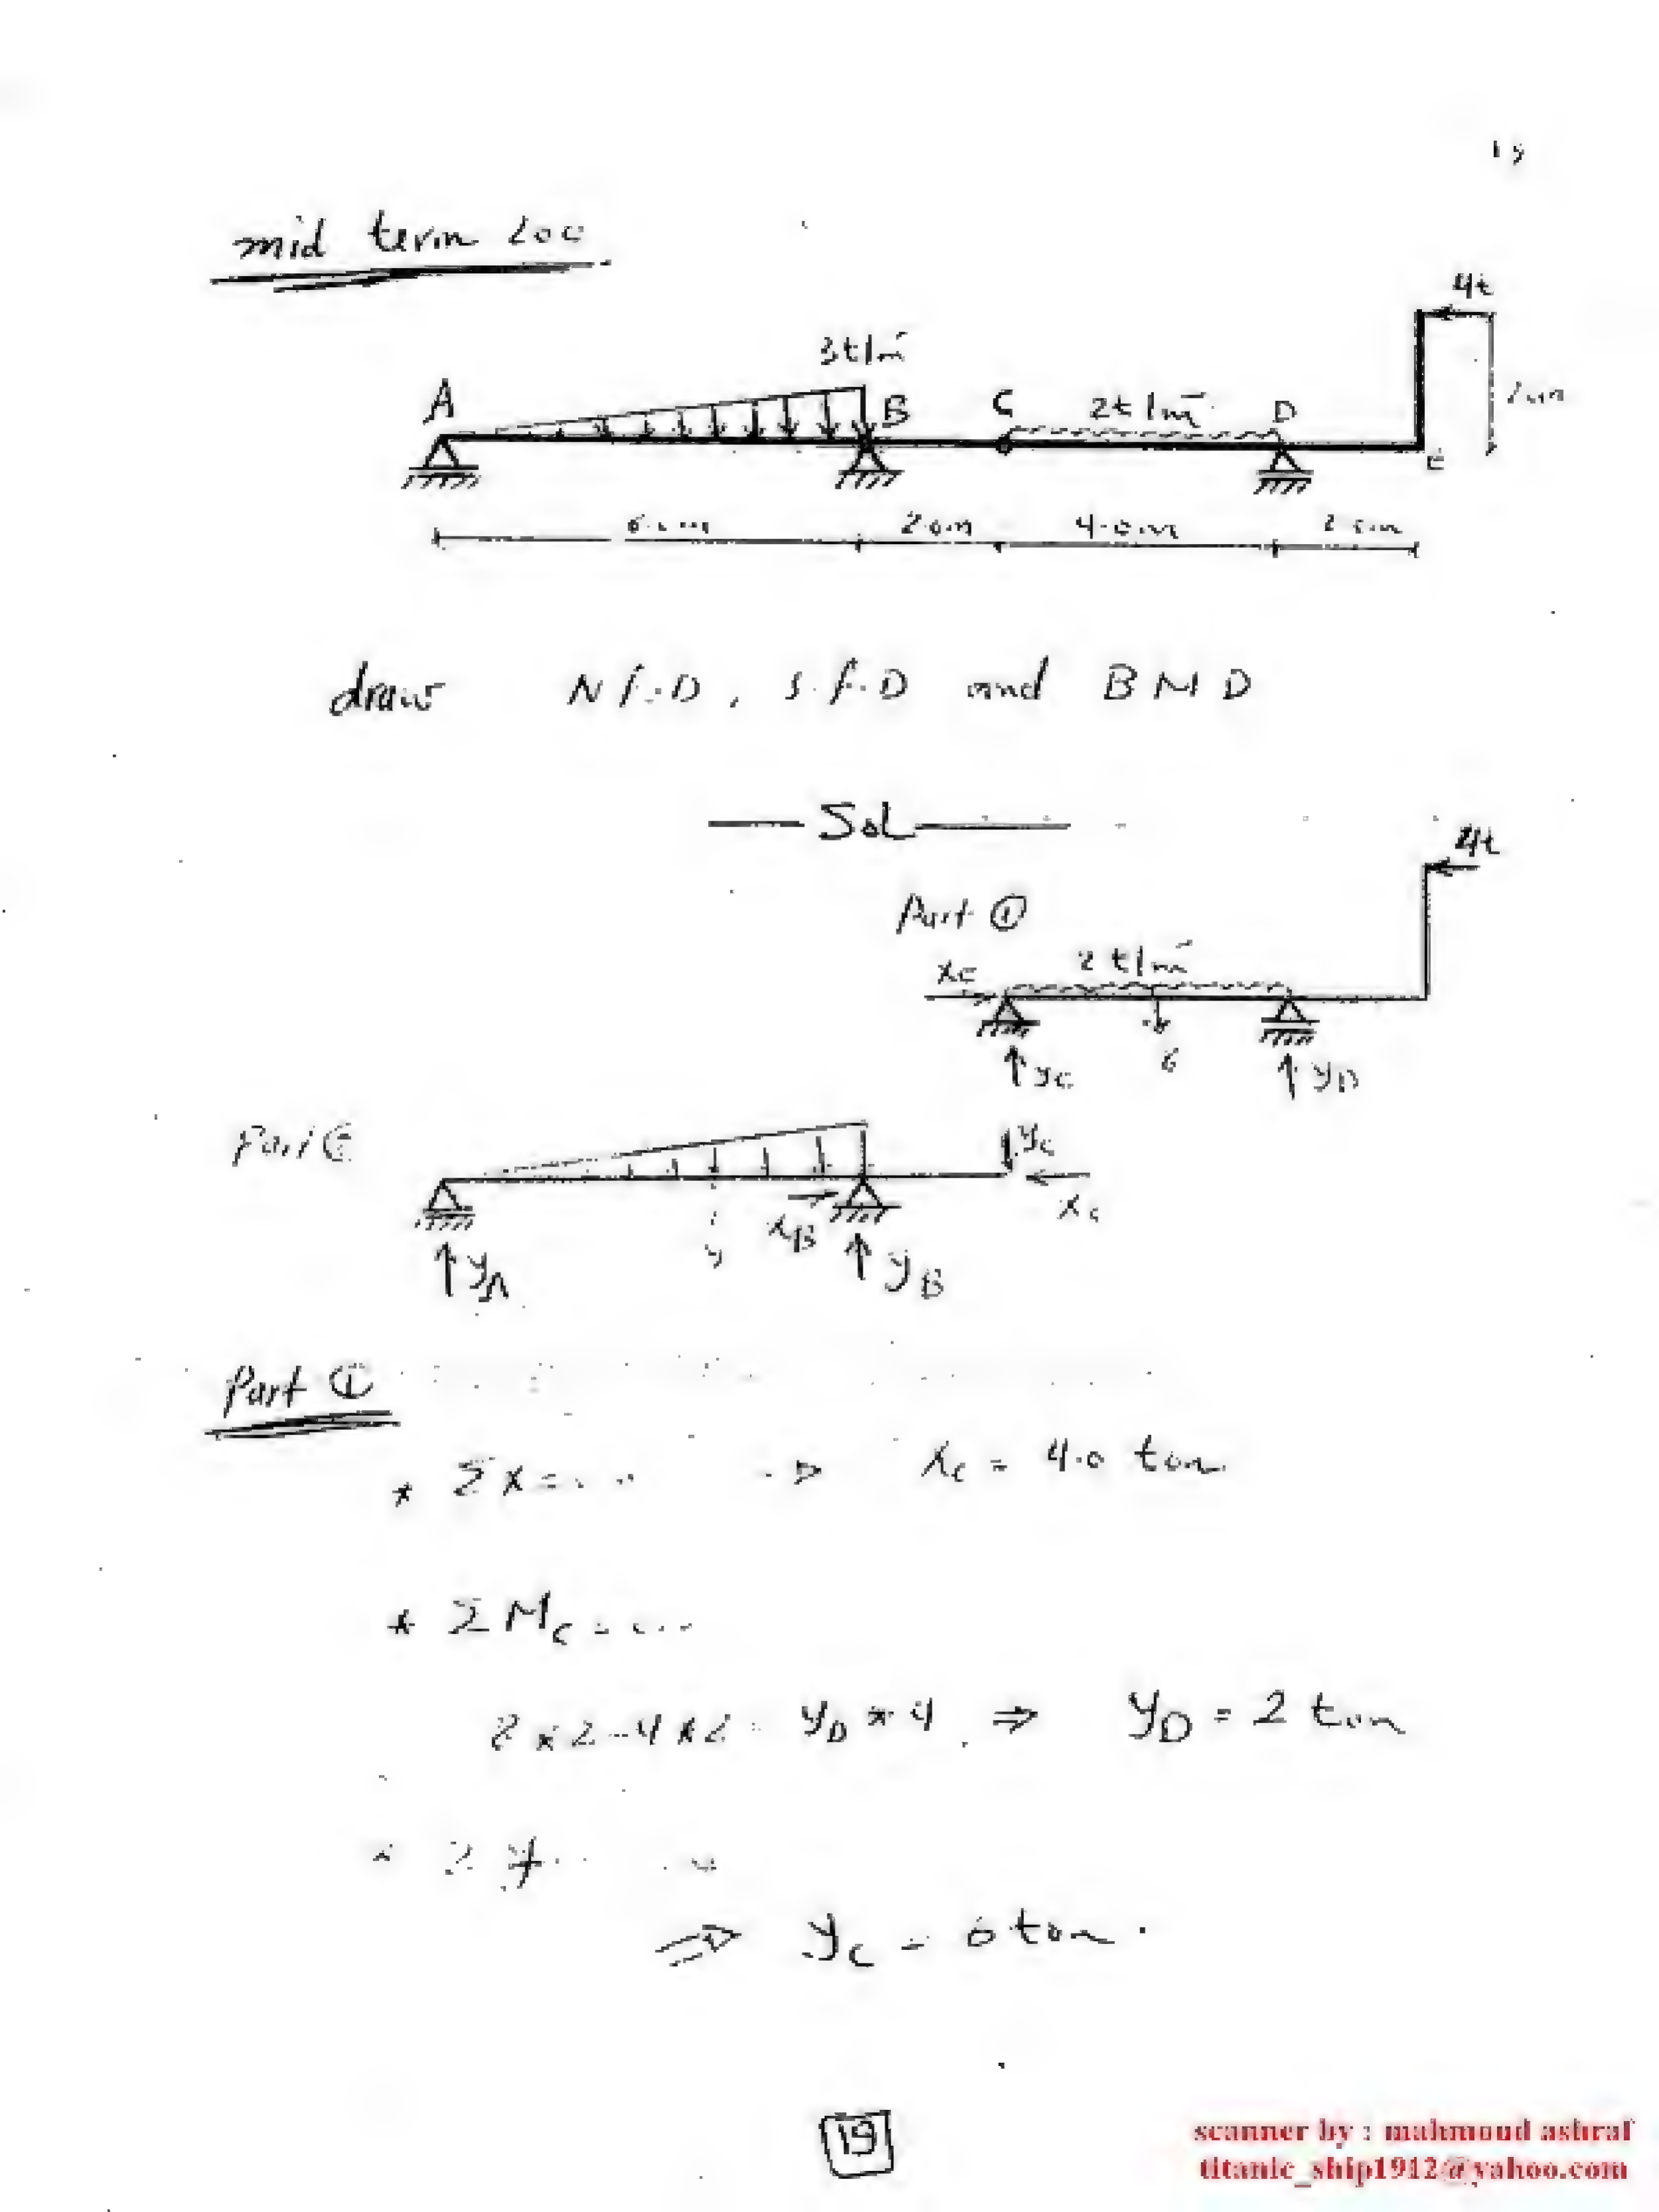 19
mid term 200
4t
3t/m
A B C 2t/m D
E
2.0m 4.0m
draw N.F.D, S.F.D and B M D
Sol
4t
Part ①
Xc 2 t/m
yc yD
Part ②
yc
XB Xc
yA yB
Part ①
* ΣX = ⇒ Xc = 4.0 ton
* ΣMc =
8*2-4*2= yD * 4 ⇒ yD = 2 ton
⇒ yc = 6 ton.
19
scanner by : mahmoud ashraf
titanic_ship1912@yahoo.com